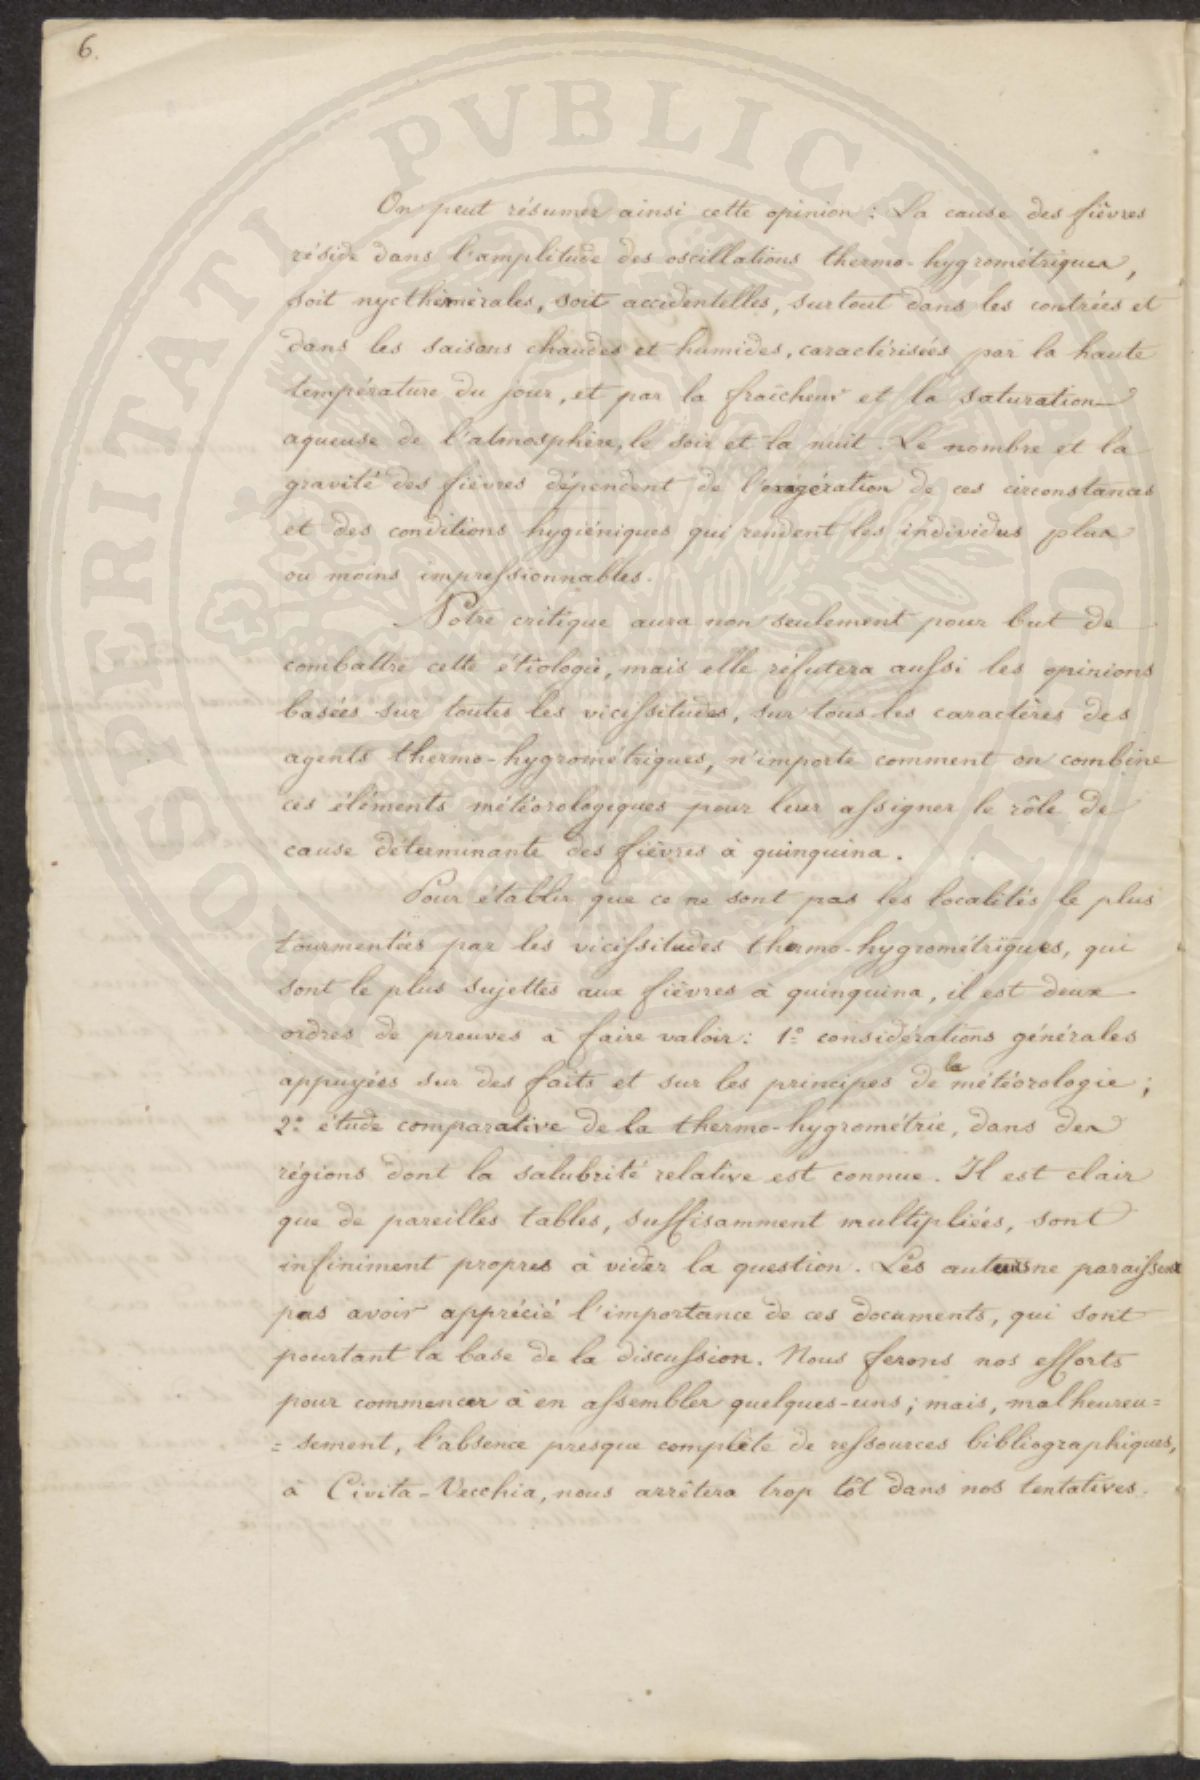 6.
On peut résumer ainsi cette opinion : La cause des fièvres
réside dans l'amplitude des oscillations thermo-hygrométriques,
soit nycthémérales, soit accidentelles, surtout dans les contrées et
dans les saisons chaudes et humides, caractérisées par la haute
température du jour, et par la fraîcheur et la saturation
aqueuse de l'atmosphère, le soir et la nuit. Le nombre et la
gravité des fièvres dépendent de l'exagération de ces circonstances
et des conditions hygiéniques qui rendent les individus plus
ou moins impressionnables.
Notre critique aura non seulement pour but de
combattre cette étiologie, mais elle réfutera aussi les opinions
basées sur toutes les vicissitudes, sur tous les caractères des
agents thermo-hygrométriques, n'importe comment on combine
ces éléments météorologiques pour leur assigner le rôle de
cause déterminante des fièvres à quinquina.
Pour établir que ce ne sont pas les localités le plus
tourmentées par les vicissitudes thermo-hygrométriques, qui
sont le plus sujettes aux fièvres à quinquina, il est deux
ordres de preuves à faire valoir : 1º considérations générales
appuyées sur des faits et sur les principes de la météorologie ;
2º étude comparative de la thermo-hygrométrie, dans des
régions dont la salubrité relative est connue. Il est clair
que de pareilles tables, suffisamment multipliées, sont
infiniment propres à vider la question. Les auteurs ne paraissent
pas avoir apprécié l'importance de ces documents, qui sont
pourtant la base de la discussion. Nous ferons nos efforts
pour commencer à en assembler quelques-uns ; mais, malheureu=
=sement, l'absence presque complète de ressources bibliographiques,
à Civita-Vecchia, nous arrêtera trop tôt dans nos tentatives.
PVBLICAE
PROSPERITATI